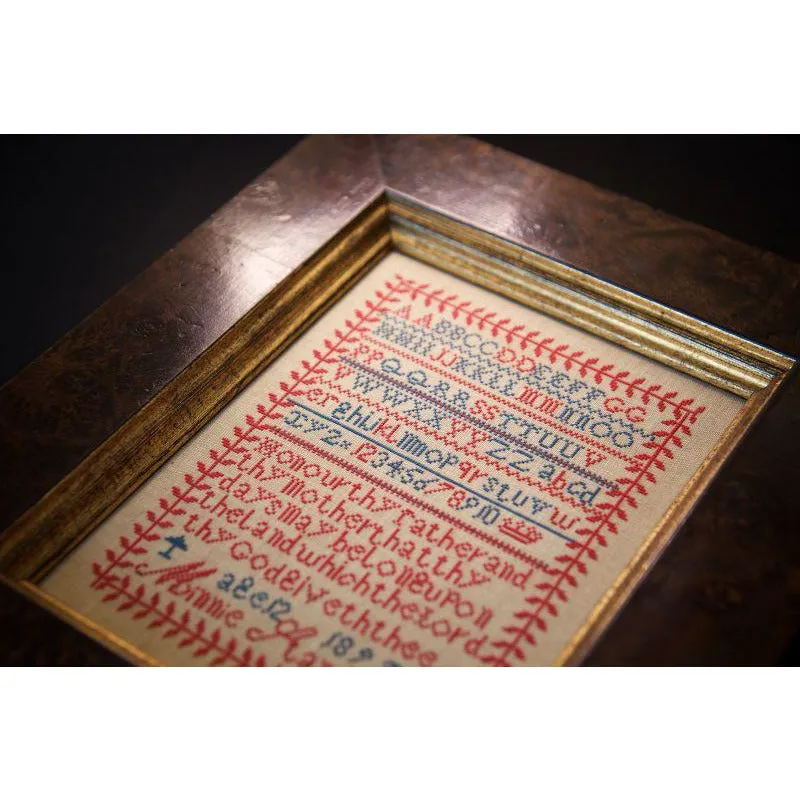 AABBCCDDEEFFGG
HHIIJJKKLLMMNNOO
PPQQRRSSTTUUV
VWWXXYYZZabcd
efghijklmnopqrstuvw
xyz. 12345678910
Honour thy father and
thy mother that thy
days may be long upon
the land which the Lord
thy God giveth thee
age.12 189
Minnie Mar